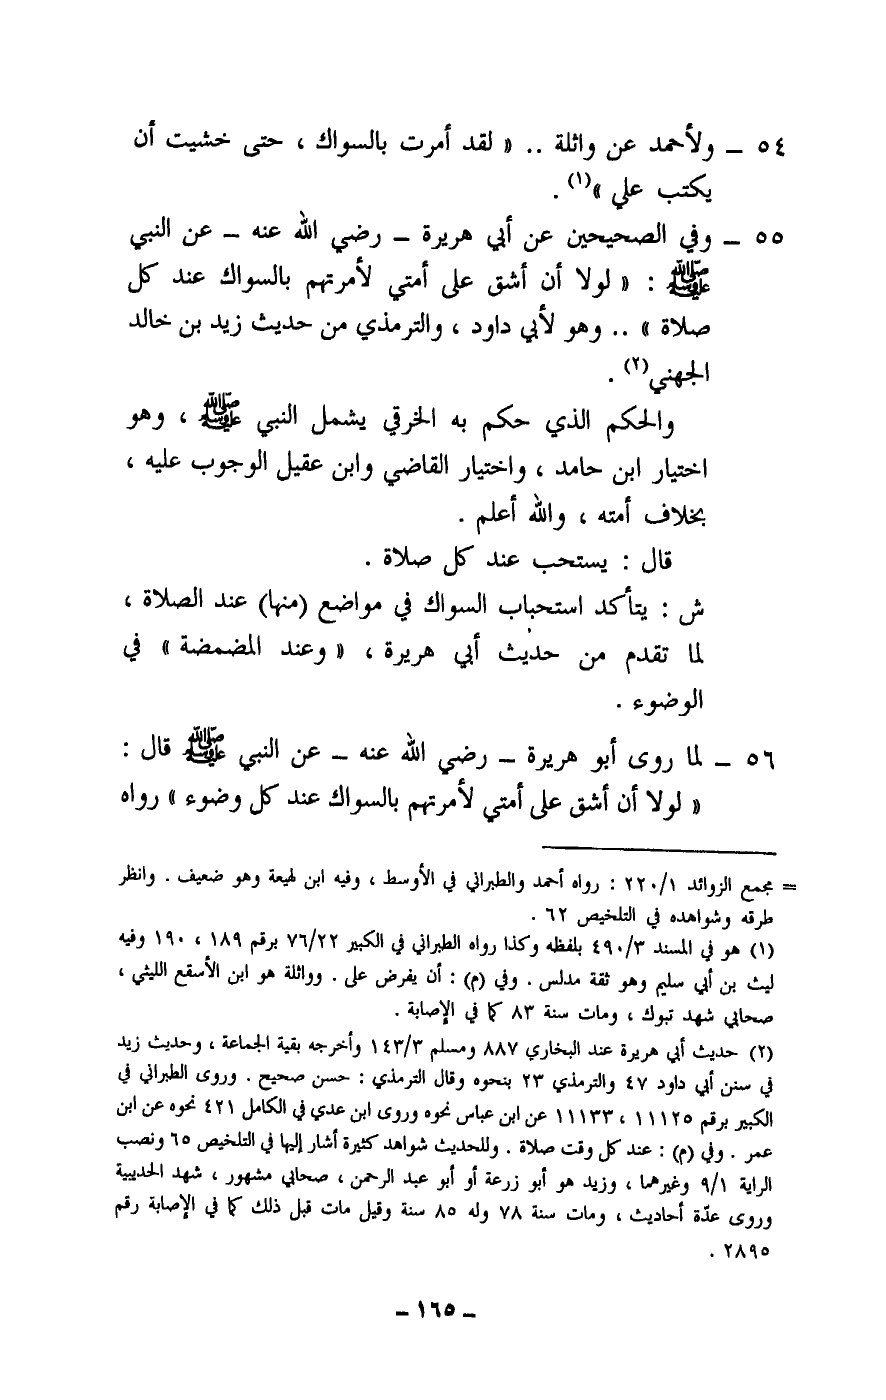 ٥٤ – ولأحمد عن واثلة .. « لقد أمرت بالسواك ، حتى خشيت أن
يكتب علي »(١) .
٥٥ – وفي الصحيحين عن أبي هريرة – رضي الله عنه – عن النبي
ﷺ : « لولا أن أشق على أمتي لأمرتهم بالسواك عند كل
صلاة » .. وهو لأبي داود ، والترمذي من حديث زيد بن خالد
الجهني(٢) .
والحكم الذي حكم به الخرقي يشمل النبي ﷺ ، وهو
اختيار ابن حامد ، واختيار القاضي وابن عقيل الوجوب عليه ،
بخلاف أمته ، والله أعلم .
قال : يستحب عند كل صلاة .
ش : يتأكد استحباب السواك في مواضع (منها) عند الصلاة ،
لما تقدم من حديث أبي هريرة ، « وعند المضمضة » في
الوضوء .
٥٦ – لما روى أبو هريرة – رضي الله عنه – عن النبي ﷺ قال :
« لولا أن أشق على أمتي لأمرتهم بالسواك عند كل وضوء » رواه
= مجمع الزوائد ٢٢٠/١ : رواه أحمد والطبراني في الأوسط ، وفيه ابن لهيعة وهو ضعيف . وانظر
طرقه وشواهده في التلخيص ٦٢ .
(١) هو في المسند ٤٩٠/٣ بلفظه وكذا رواه الطبراني في الكبير ٧٦/٢٢ برقم ١٨٩ ، ١٩٠ وفيه
ليث بن أبي سليم وهو ثقة مدلس . وفي (م) : أن يفرض على . وواثلة هو ابن الأسقع الليثي ،
صحابي شهد تبوك ، ومات سنة ٨٣ كما في الإصابة .
(٢) حديث أبي هريرة عند البخاري ٨٨٧ ومسلم ١٤٣/٣ وأخرجه بقية الجماعة ، وحديث زيد
في سنن أبي داود ٤٧ والترمذي ٢٣ بنحوه وقال الترمذي : حسن صحيح . وروى الطبراني في
الكبير برقم ١١١٢٥ ، ١١١٣٣ عن ابن عباس نحوه وروى ابن عدي في الكامل ٤٢١ نحوه عن ابن
عمر . وفي (م) : عند كل وقت صلاة . وللحديث شواهد كثيرة أشار إليها في التلخيص ٦٥ ونصب
الراية ٩/١ وغيرهما ، وزيد هو أبو زرعة أو أبو عبد الرحمن ، صحابي مشهور ، شهد الحديبية
وروى عدّة أحاديث ، ومات سنة ٧٨ وله ٨٥ سنة وقيل مات قبل ذلك كما في الإصابة رقم
٢٨٩٥ .
– ١٦٥ –